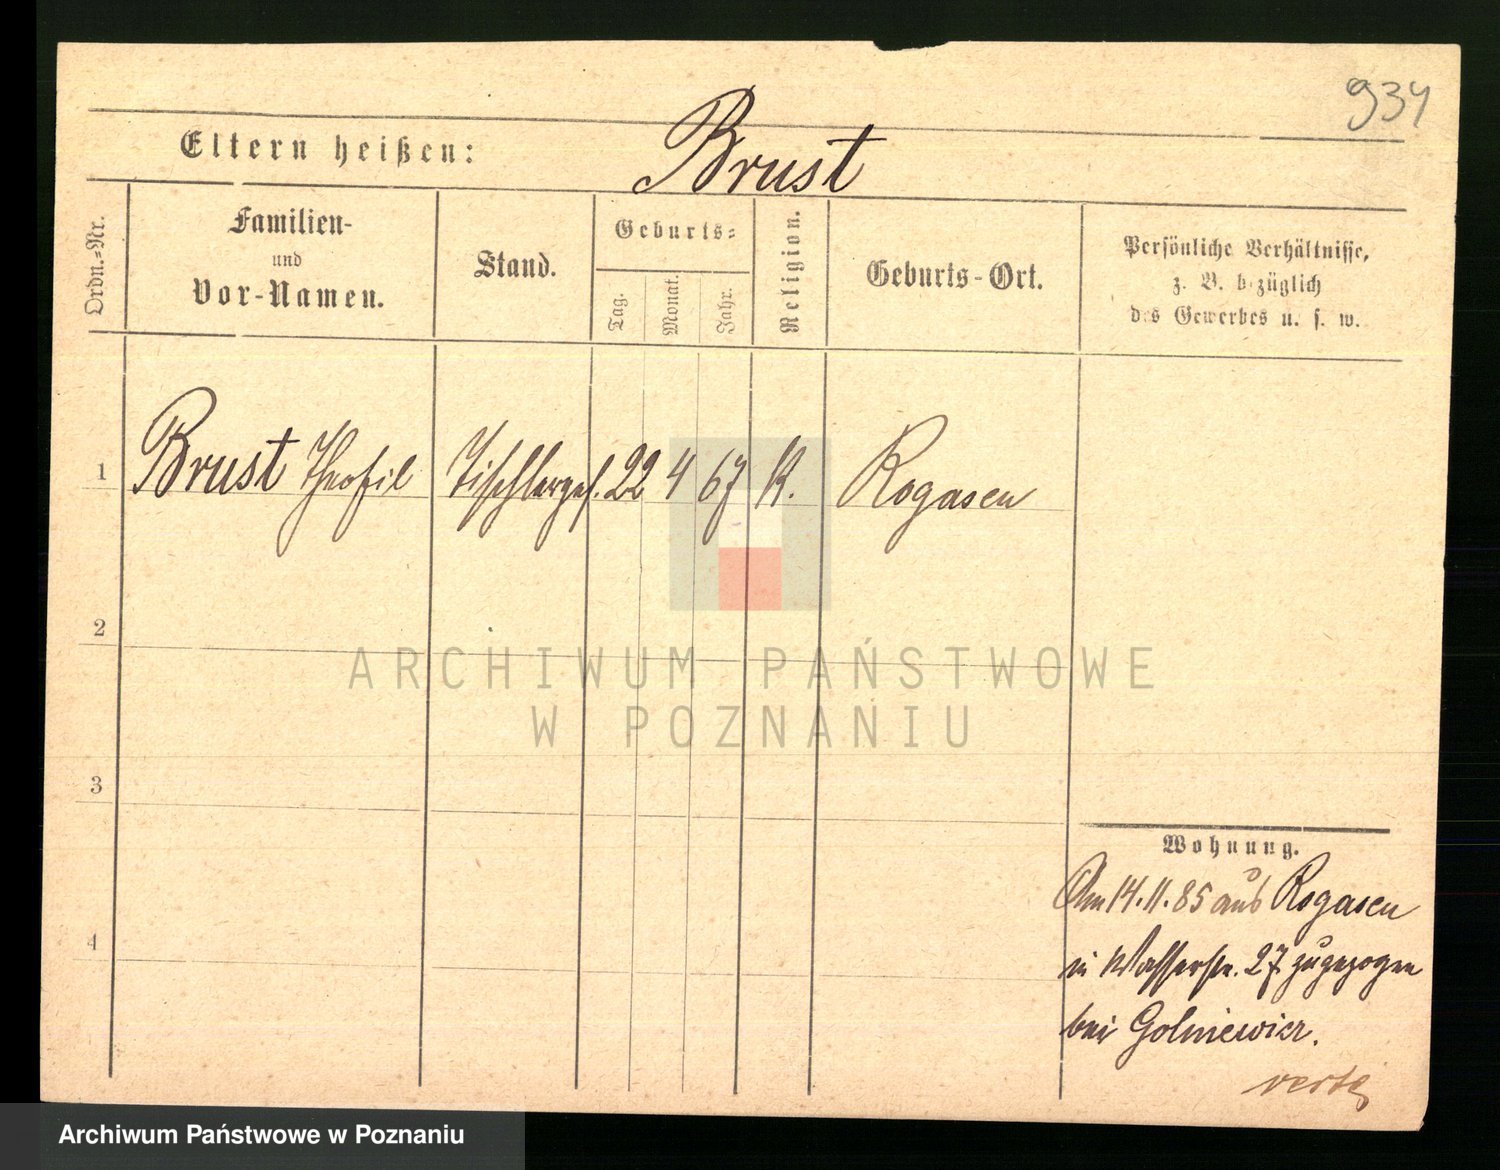 934
Eltern heißen: Brust
Ordn.=Nr.
Familien-
und
Vor-Namen.
Stand.
Geburts=
Tag.
Monat.
Jahr.
Religion.
Geburts-Ort.
Persönliche Verhältnisse,
z. B. bezüglich
des Gewerbes u. s. w.
1 Brust Theofil Tischlerges. 22 4 67 K. Rogasen
2
3
4
Wohnung.
Am 14.11.85 aus Rogasen
in Wasserstr. 27 zugezogen
bei Golniewicz.
verte
ARCHIWUM PAŃSTWOWE
W POZNANIU
Archiwum Państwowe w Poznaniu